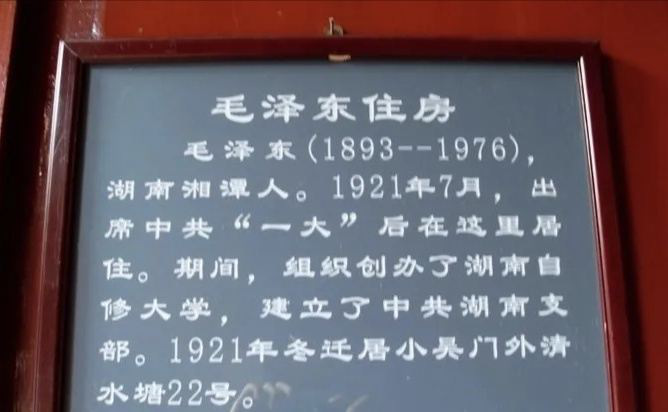 毛泽东住房
毛泽东(1893--1976),
湖南湘潭人。1921年7月,出
席中共“一大”后在这里居
住。期间,组织创办了湖南自
修大学,建立了中共湖南支
部。1921年冬迁居小吴门外清
水塘22号。